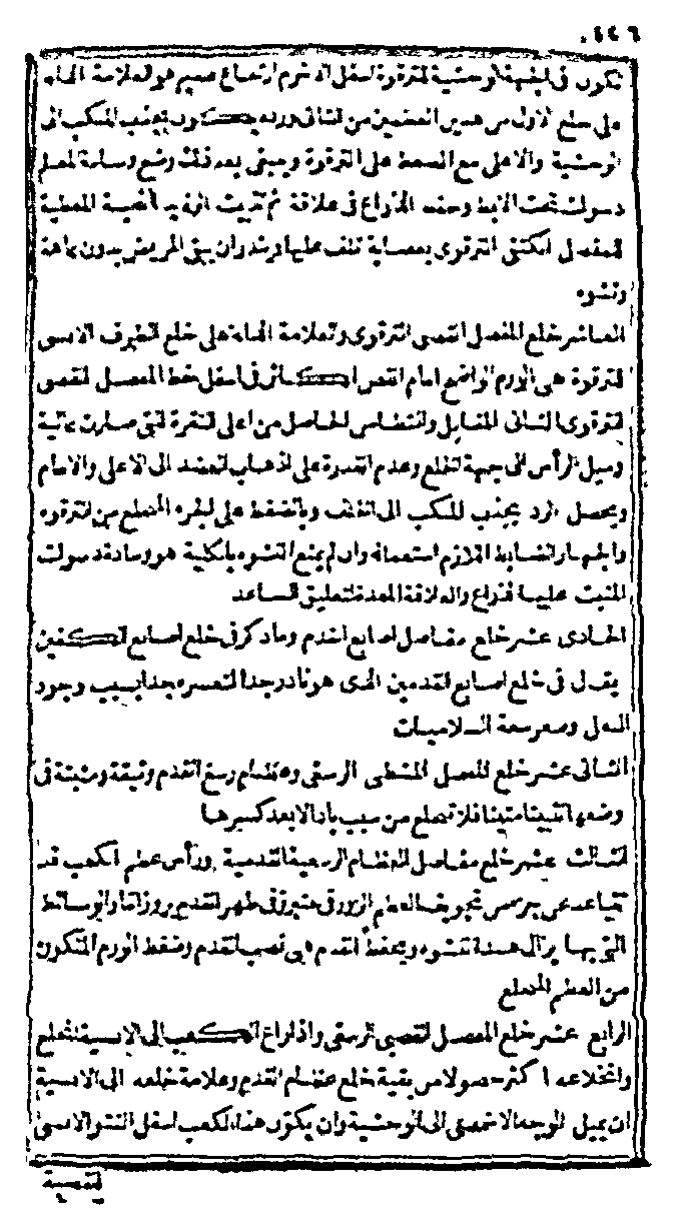 ٤٤٦
تكون فى الجهة الوحشية للترقوة اسفل الاخرم ارتفاع صغير هو العلامة الدالة
على خلع الاول من هذين العظمين من الثانى ورده يكون بجذب المنكب الى
الوحشية والاعلى مع الضغط على الترقوة ويبقى بعد ذلك وضع وسادة لمعلم
دسولت تحت الابط وحفظ الذراع فى علاقة ثم تثبيت الرفيد المغطية
للمفصل الكتفى الترقوى بعصابة تلف عليها ويندر ان يبقى المريض بدون عاهة
وتشوه
العاشر خلع المفصل القصى الترقوى والعلامة الدالة على خلع الطرف الانسى
للترقوة هى الورم الواضح امام القص الكائن فى اسفل خط المفصل القصى
الترقوى الثانى المقابل والانخفاض الحاصل من اعلى النقرة التى صارت خالية
وميل الرأس الى جهة الخلع وعدم القدرة على الذهاب بالعضد الى الاعلى والامام
ويحصل الرد بجذب المنكب الى الخلف وبالضغط على الجزء المنخلع من الترقوة
والجهاز الضابط اللازم استعماله وان لم يمنع التشوه بالكلية هو وسادة دسولت
المثبت عليها الذراع والعلاقة المعدة لتعليق الساعد
الحادى عشر خلع مفاصل اصابع القدم وما ذكر فى خلع اصابع الكفين
يقال فى خلع اصابع القدمين الذى هو نادر جدا لتعسره جدا بسبب وجود
النعل وصغر سعة السلاميات
الثانى عشر خلع المفصل المشطى الرسغى وعظام رسغ القدم وثيقة ومثبتة فى
وضعها تثبيتا متينا فلا تنخلع من سبب باد الا بعد كسرها
الثالث عشر خلع مفاصل العظام الرسغية القدمية ورأس عظم الكعب قد
تتباعد عن تجويف العظم الزورقى فتبرز فى ظهر القدم بروزا والوسائط
التى بها يزال هذا التشوه ويحفظ القدم هى نصب القدم وضغط الورم المتكون
من العظم المنخلع
الرابع عشر خلع المفصل القصبى الرسغى واذا زاغ الكعب الى الانسية انخلع
وانخلاعه اكثر حصولا من بقية خلع عظام القدم وعلامة خلعه الى الانسية
ان يميل الوجه الاخمصى الى الوحشية وان يكون هذا الكعب اسفل النتو الانسى
للقصبة